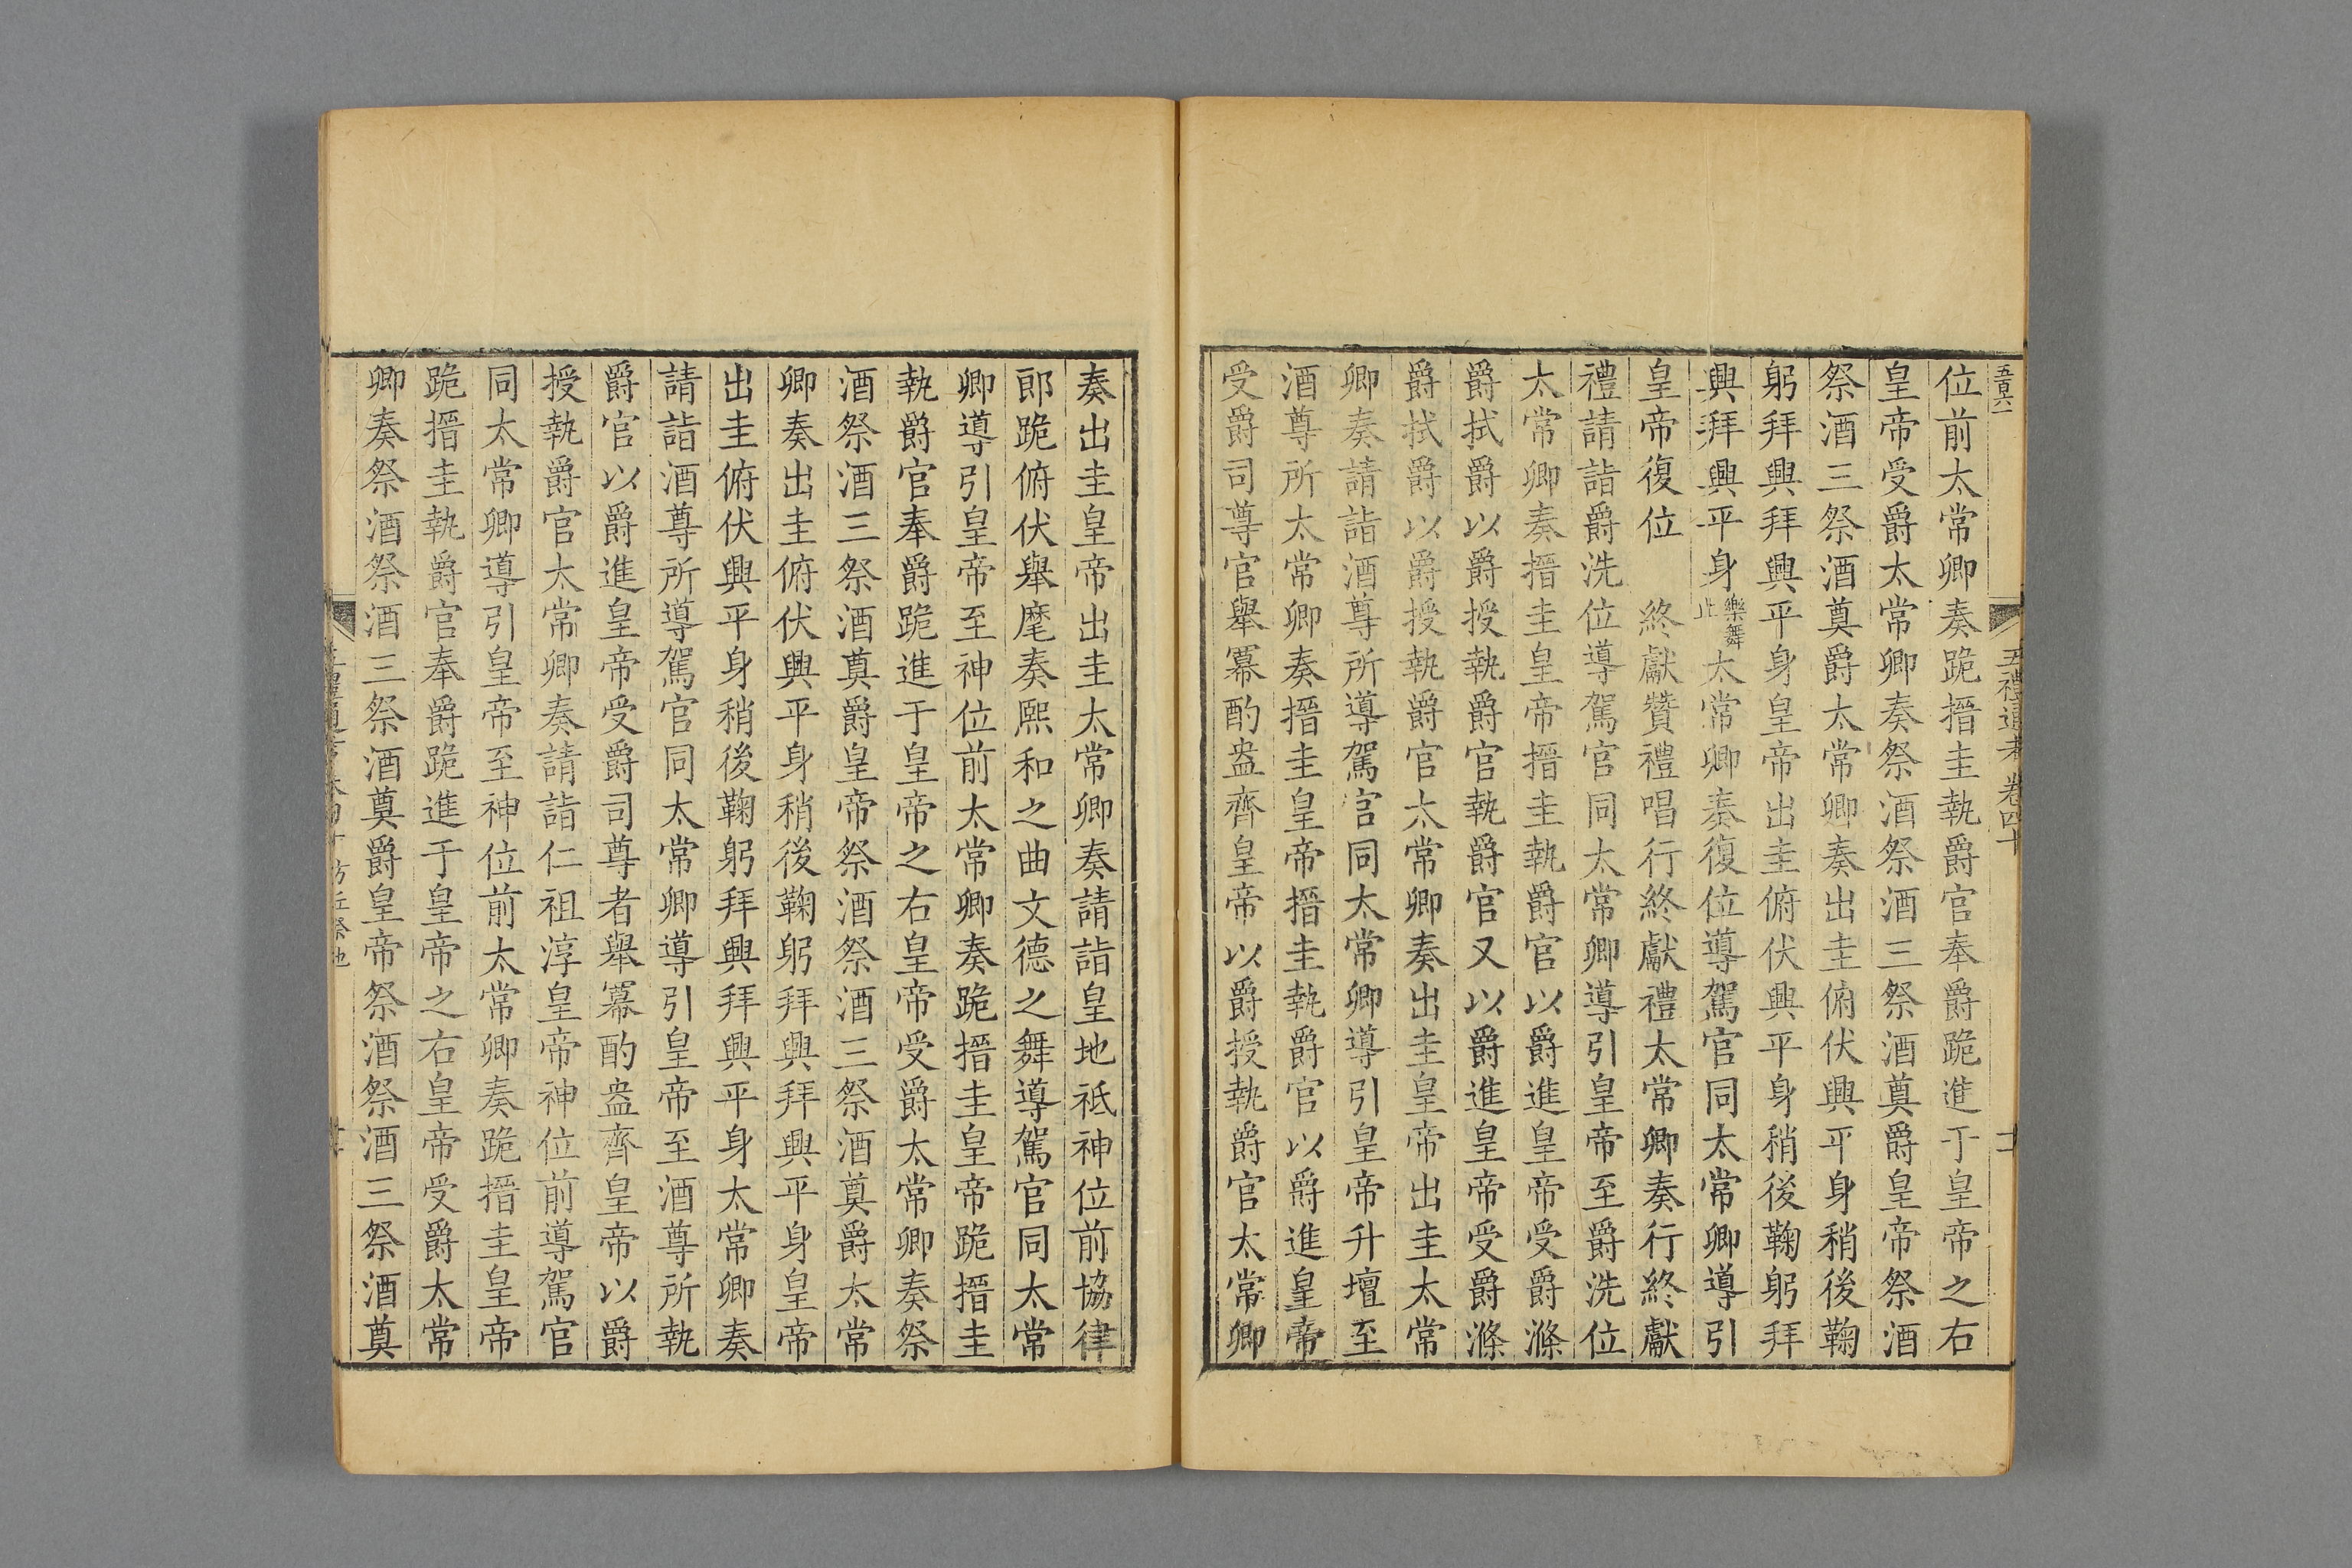 五禮通考 卷四十
位前太常卿奏跪搢圭執爵官奉爵跪進于皇帝之右
皇帝受爵太常卿奏祭酒祭酒三祭酒奠爵皇帝祭酒
祭酒三祭酒奠爵太常卿奏出圭俯伏興平身稍後鞠
躬拜興拜興平身皇帝出圭俯伏興平身稍後鞠躬拜
興拜興平身樂舞止太常卿奏復位導駕官同太常卿導引
皇帝復位　終獻贊禮唱行終獻禮太常卿奏行終獻
禮請詣爵洗位導駕官同太常卿導引皇帝至爵洗位
太常卿奏搢圭皇帝搢圭執爵官以爵進皇帝受爵滌
爵拭爵以爵授執爵官執爵官又以爵進皇帝受爵滌
爵拭爵以爵授執爵官太常卿奏出圭皇帝出圭太常
卿奏請詣酒尊所導駕官同太常卿導引皇帝升壇至
酒尊所太常卿奏搢圭皇帝搢圭執爵官以爵進皇帝
受爵司尊官舉冪酌盎齊皇帝以爵授執爵官太常卿
奏出圭皇帝出圭太常卿奏請詣皇地祗神位前協律
郎跪俯伏舉麾奏熙和之曲文德之舞導駕官同太常
卿導引皇帝至神位前太常卿奏跪搢圭皇帝跪搢圭
執爵官奉爵跪進于皇帝之右皇帝受爵太常卿奏祭
酒祭酒三祭酒奠爵皇帝祭酒祭酒三祭酒奠爵太常
卿奏出圭俯伏興平身稍後鞠躬拜興拜興平身皇帝
出圭俯伏興平身稍後鞠躬拜興拜興平身太常卿奏
請詣酒尊所導駕官同太常卿導引皇帝至酒尊所執
爵官以爵進皇帝受爵司尊者舉冪酌盎齊皇帝以爵
授執爵官太常卿奏請詣仁祖淳皇帝神位前導駕官
同太常卿導引皇帝至神位前太常卿奏跪搢圭皇帝
跪搢圭執爵官奉爵跪進于皇帝之右皇帝受爵太常
卿奏祭酒祭酒三祭酒奠爵皇帝祭酒祭酒三祭酒奠